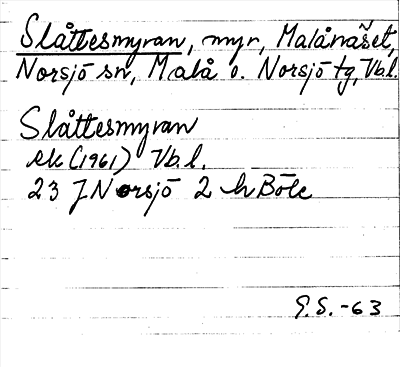 Slåttesmyran, myr, Malånäset,
Norsjö sn, Malå o. Norsjö tg, Vb.l.
Slåttesmyran
ek (1961) Vb.l.
23 J Norsjö 2 h Böle
G.S. -63